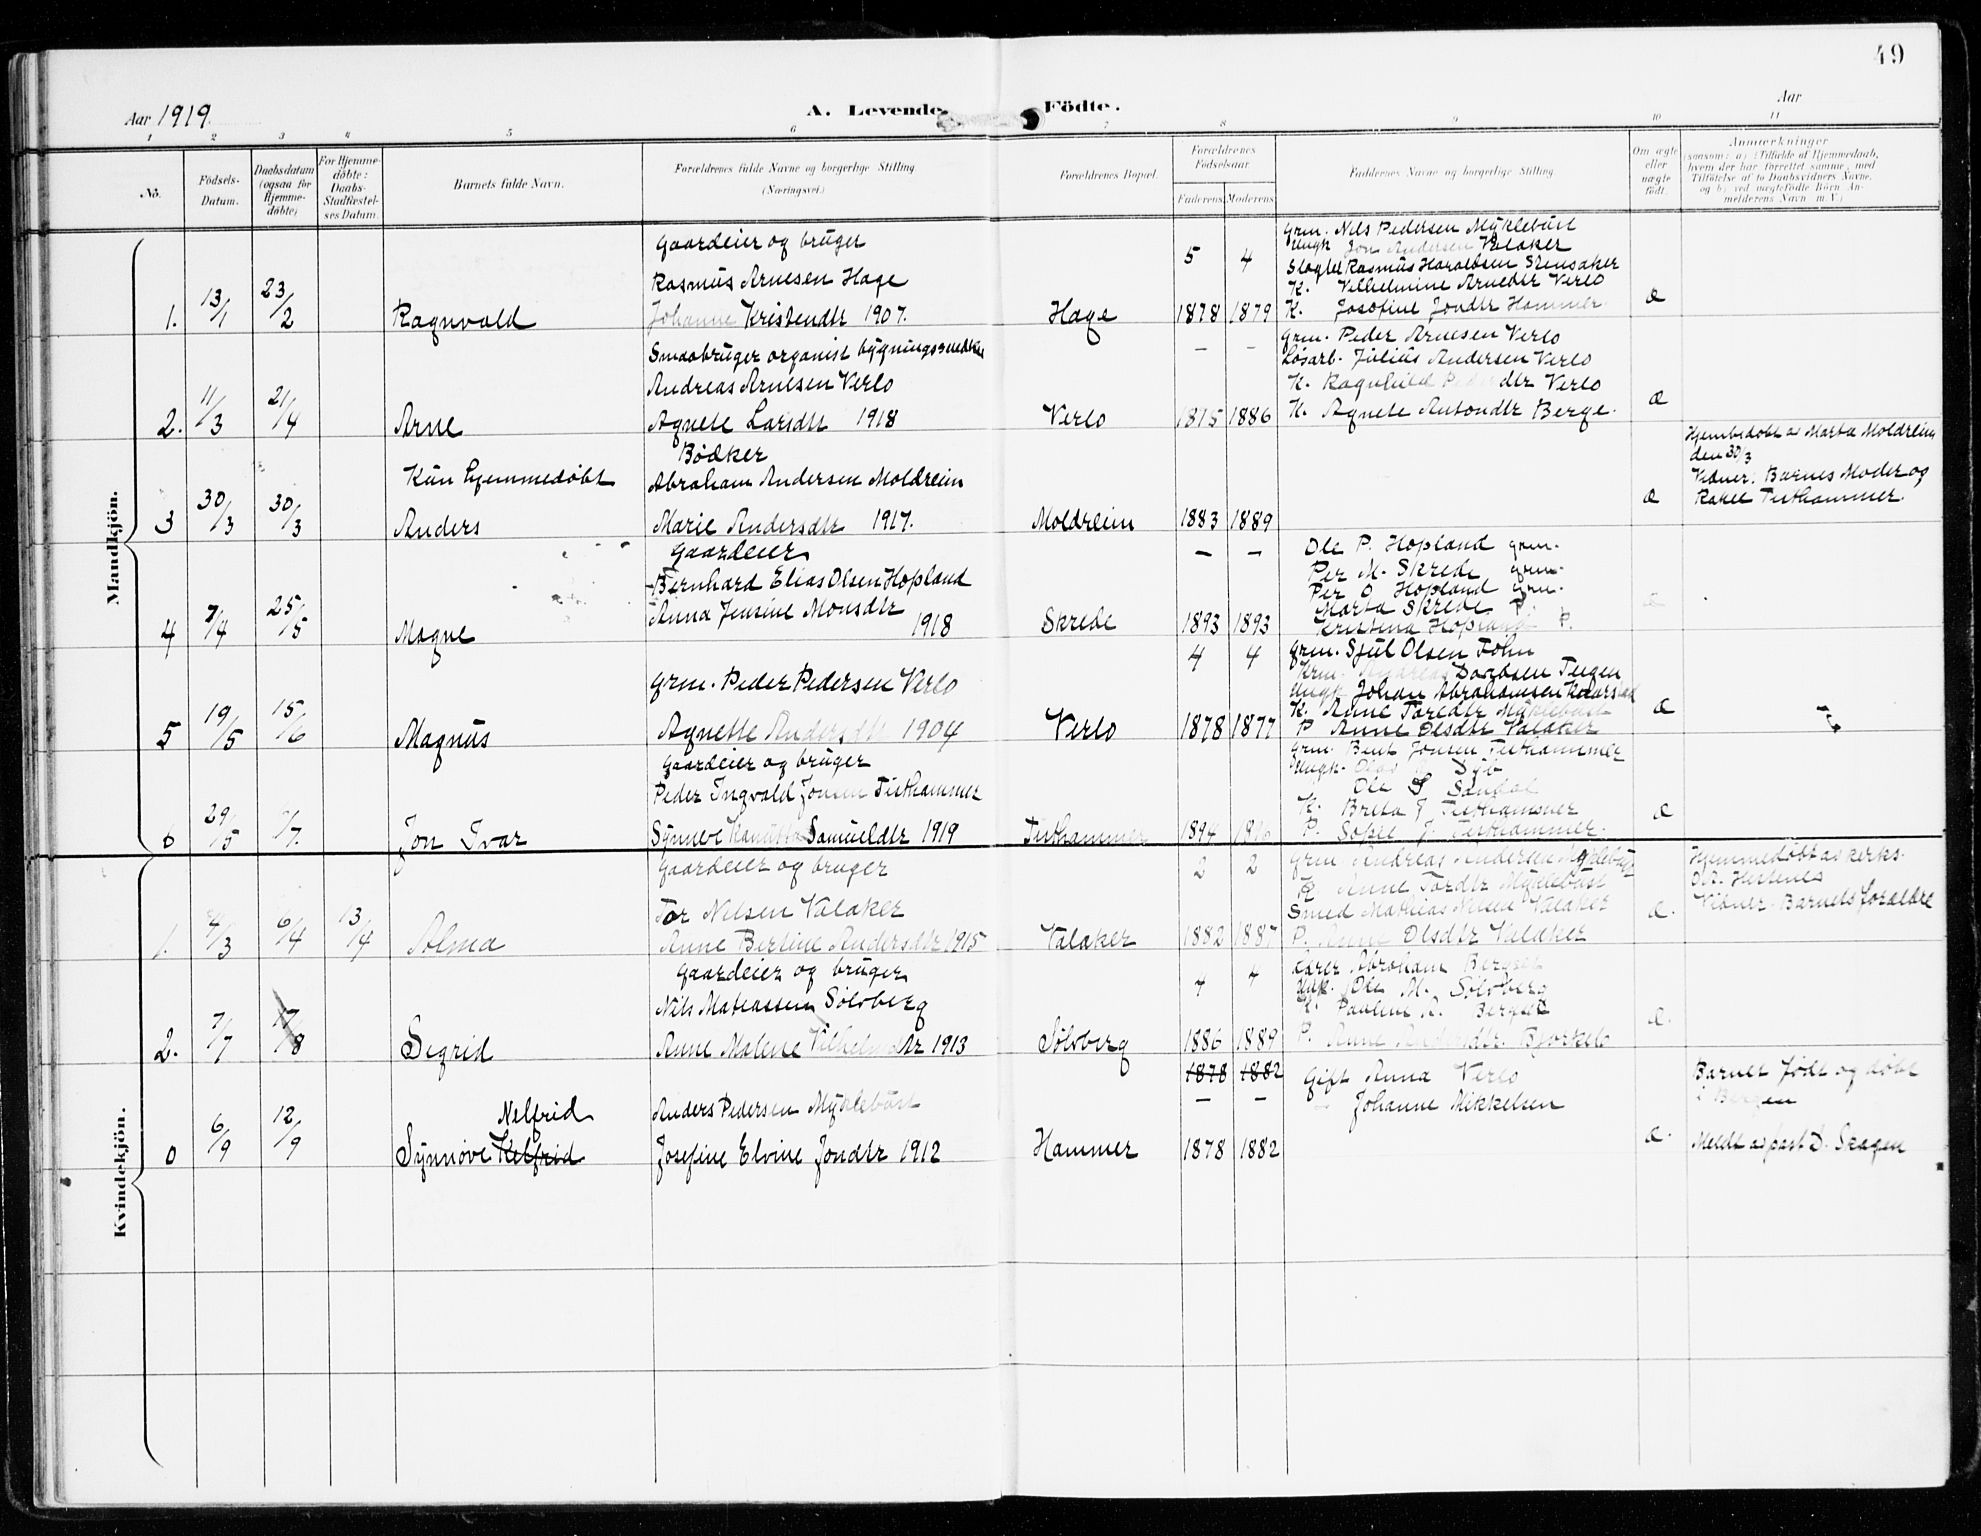 49
Aar 1919.
A. Levende Födte.
Aar
1 2 3 4 5 6 7 8 9 10 11
No.
Födsels-Datum.
Daabsdatum (ogsaa for Hjemme-döbte)
For Hjemme-döbte: Daabs-Stadfæstel-ses Datum.
Barnets fulde Navn.
Forældrenes fulde Navne og borgerlige Stilling (Næringsvei.)
Forældrenes Bopæl.
Forældrenes Födselsaar.
Faderens. Moderens.
Faddernes Navne og borgerlige Stilling.
Om ægte eller uægte födt.
Anmærkninger
(saasom: a) i Tilfælde af Hjemmedaab, hvem der har forrettet samme, med Tilföielse af to Daabsvidners Navne, og b) ved uægtefödte Börn An-melderens Navn m.V.)
Mandkjön.
1. 13/1 23/2
Ragnvald
Gaardeier og bruger
Rasmus Arnesen Hage
Johanne Kristendtr 1907.
Hage
5 4
1878 1879
Grm. Nils Pedersen Myklebust
Ungk Jon Andersen Valaker
Rasmus Haraldsen Stensaker
K. Vilhelmine Arnedtr Verlo
K. Josefine Jondtr Hammer.
Æ
2. 11/3 21/4
Arne
Smaabruger organist bygningssnedker
Andreas Arnesen Verlo
Agnete Larsdtr 1918
Verlo
— —
1875 1886
Grm. Peder Arnesen Verlo
Løsarb. Julius Andersen Verlo
K. Ragnhild Pedersdtr Verlo
K. Agnete Antondtr Berge.
Æ
3 30/3 30/3
Kun hjemmedøbt
Anders
Bødker
Abraham Andersen Moldreim
Marie Andersdtr 1917.
Moldreim
1883 1889
Æ
Hjemmedøbt av Marta Moldreim
den 30/3
Vidner: Barnets Moder og
Rakel Tisthammer.
4 7/4 25/5
Magne
Gaardeier
Bernhard Elias Olsen Hopland
Anna Jensine Monsdtr
1918
Skrede
— —
1893 1893
Ole P. Hopland grm.
Per M. Skrede grm.
Per O Hopland grm.
Marta Skrede P.
Kristina Hopland P.
5 19/5 15/6
Magnus
Grm. Peder Pedersen Verlo
Agnette Andersdtr 1904
Verlo
4 4
1878 1877
Grm. Sjul Olsen Tohn
Ungk Johan Abrahamsen
K. Anne Toredtr Myklebust
P Anne Olsdtr Valaker
Æ
6 29/5 /7.
Jon Ivar
Gaardeier og bruger
Peder Ingvald Jonsen Tisthammer
Synneve Samueldtr 1919
Tisthammer
1894
Grm. Bent Jonsen Tisthammer
Ungk.
Ole S Sandal
K. Breta J Tisthammer
P. Sofie J. Tisthammer.
Æ
Kvindekjön.
1. 4/3 6/4 13/4
Alma
Gaardeier og bruger
Tor Nelsen Valaker
Anne Bertine Andersdtr 1915
Valaker
2 2
1882 1887
Grm Andreas Andersen Myklebust
K. Anne Tordtr Myklebust
Smed Mathias Nelsen Valaker
P. Anne Olsdtr Valaker
Æ.
Hjemmedøbt av kirks.
A. Hestenes
Vidner. Barnets forældre
2. 7/7 17/8
Segrid
Gaardeier og bruger
Nils Matiassen Sølvberg
Anne Malene 1913
Sølvberg
4 4
1886 1889
Abraham Bergset
Ungk. Ole M. Sølvberg
K. Pauline A. Bergset
P. Anne Andersdtr.
Æ.
0 6/9 12/9
Nelfrid
Synnøve Kelfrid
Anders Pedersen Myklebust
Josefine Elvine Jondtr 1912
Hammer
1878 1882
— —
1878 1882
Gift Anna Verlo
— Johanne Mikkelsen
Æ.
Barnet født og døbt
i Bergen
Meldt av past D. Skagen